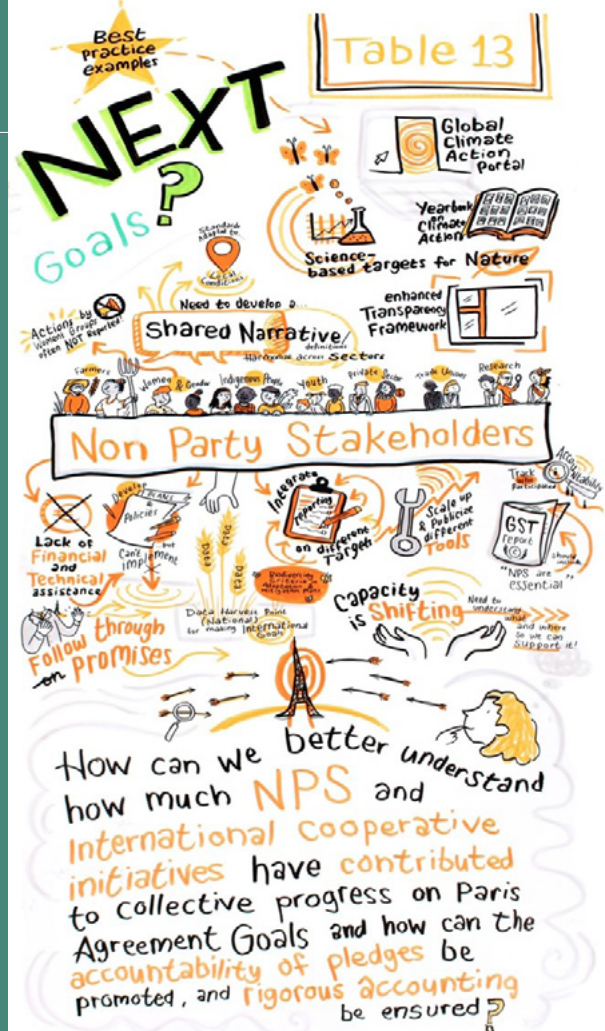 Best
practice
examples
Table 13
NEXT
Goals?
Global
Climate
Action
Portal
Yearbook
on
Climate
Action
Science-
based targets for Nature
Standards
Adapted to
Local
Conditions
Need to develop a...
Shared Narrative/
definitions
Harmonise across Sectors
enhanced
Transparency
Framework
Actions by
Womens Groups
often NOT Reported!
Farmers
Women & Gender
Indigenous People
Youth
Private Sector
Trade Unions
Research
Non Party Stakeholders
Lack of
Financial
and
Technical
assistance
Develop
PLANS
&
Policies
but
Can't
implement
DATA
DATA
DATA
Data Harvest Point
(National)
for making International
Goals
Integrate
reporting
on different
Target
Biodiversity
Adaptation &
Mitigation Plans
Scale up
& Publicize
different
TOOLS
Track
Participation
Accountability
GST
report
(c)
should
include
"NPS are
essential
Capacity
is Shifting
Need to
understand
what
and where
so we can
Support it!
Follow through
on promises
How can we better understand
how much NPS and
International Cooperative
initiatives have contributed
to collective progress on Paris
Agreement Goals and how can the
accountability of pledges be
promoted, and rigorous accounting
be ensured?